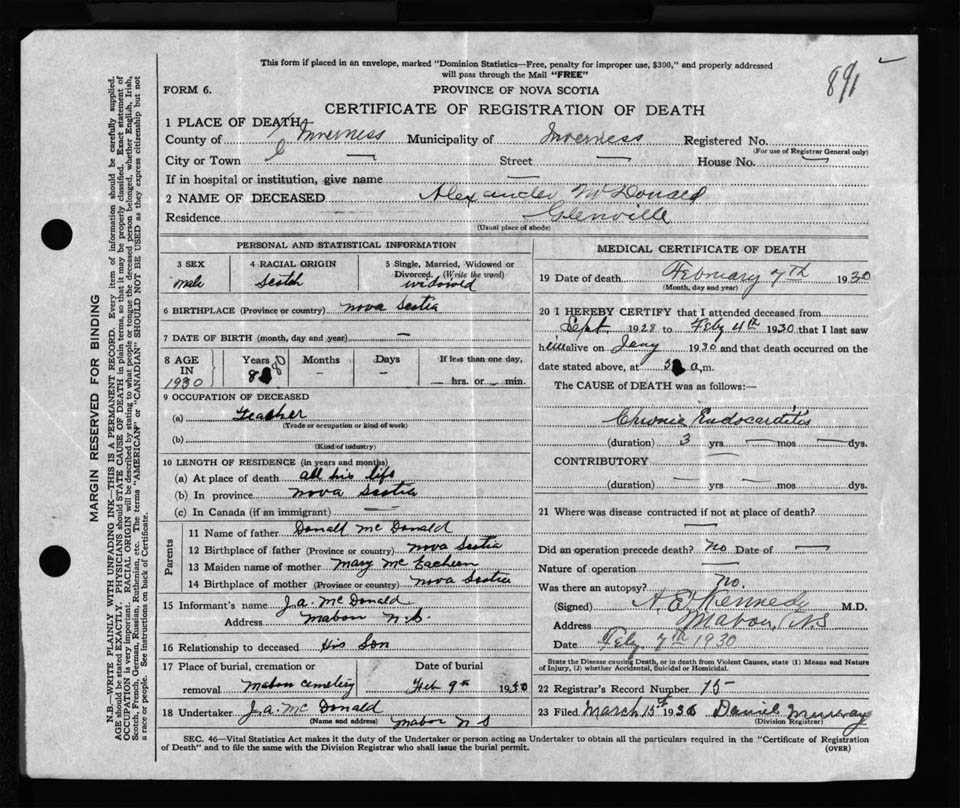 This form if placed in an envelope, marked "Dominion Statistics—Free, penalty for improper use, $300," and properly addressed
will pass through the Mail "FREE"
FORM 6.
PROVINCE OF NOVA SCOTIA
891
CERTIFICATE OF REGISTRATION OF DEATH
1 PLACE OF DEATH
County of Inverness Municipality of Inverness Registered No.
(For use of Registrar General only)
City or Town — Street — House No. —
If in hospital or institution, give name —
2 NAME OF DECEASED Alexander McDonald
Residence Glenville
(Usual place of abode)
PERSONAL AND STATISTICAL INFORMATION
3 SEX
male
4 RACIAL ORIGIN
Scotch
5 Single, Married, Widowed or
Divorced. (Write the word)
widowed
6 BIRTHPLACE (Province or country) Nova Scotia
7 DATE OF BIRTH (month, day and year) —
8 AGE
IN
1930
Years 80
Months
—
Days
—
If less than one day,
— hrs. or — min.
9 OCCUPATION OF DECEASED
(a) Teacher
(Trade or occupation or kind of work)
(b)
(Kind of industry)
10 LENGTH OF RESIDENCE (in years and months)
(a) At place of death all his life
(b) In province Nova Scotia
(c) In Canada (if an immigrant) —
Parents
11 Name of father Donald McDonald
12 Birthplace of father (Province or country) Nova Scotia
13 Maiden name of mother Mary McEachern
14 Birthplace of mother (Province or country) Nova Scotia
15 Informant's name J.A. McDonald
Address Mabou N.S.
16 Relationship to deceased His Son
17 Place of burial, cremation or Date of burial
removal Mabou Cemetery Feb 9th 1930
18 Undertaker J.A. McDonald
(Name and address) Mabou N S
MEDICAL CERTIFICATE OF DEATH
19 Date of death February 7th 1930
(Month, day and year)
20 I HEREBY CERTIFY that I attended deceased from
Sept 1928 to Feby 4th 1930 that I last saw
him alive on 1930 and that death occurred on the
date stated above, at a.m.
The CAUSE OF DEATH was as follows:—
Chronic Endocarditis
(duration) 3 yrs — mos — dys.
CONTRIBUTORY —
(duration) — yrs — mos — dys.
21 Where was disease contracted if not at place of death?
—
Did an operation precede death? No Date of —
Nature of operation —
Was there an autopsy? No.
(Signed) A.E. Kennedy M.D.
Address Mabou, N.S
Date Feby 7th 1930
State the Disease causing Death, or in death from Violent Causes, state (1) Means and Nature
of Injury, (2) whether Accidental, Suicidal or Homicidal.
22 Registrar's Record Number 15
23 Filed March 15th 1930 Daniel Murray
(Division Registrar)
SEC. 46—Vital Statistics Act makes it the duty of the Undertaker or person acting as Undertaker to obtain all the particulars required in the "Certificate of Registration
of Death" and to file the same with the Division Registrar who shall issue the burial permit.
(OVER)
MARGIN RESERVED FOR BINDING
N.B—WRITE PLAINLY WITH UNFADING INK—THIS IS A PERMANENT RECORD. Every item of information should be carefully supplied.
AGE should be stated EXACTLY. PHYSICIANS should STATE CAUSE OF DEATH in plain terms, so that it may be properly classified. Exact statement of
OCCUPATION is very important. RACIAL ORIGIN will be described by stating to what people or tongue the deceased person belonged, whether English, Irish,
Scotch, French, German, Russian, Ruthenian, etc. The terms "AMERICAN" or "CANADIAN" SHOULD NOT BE USED as they express citizenship but not
a race or people. See instructions on back of Certificate.